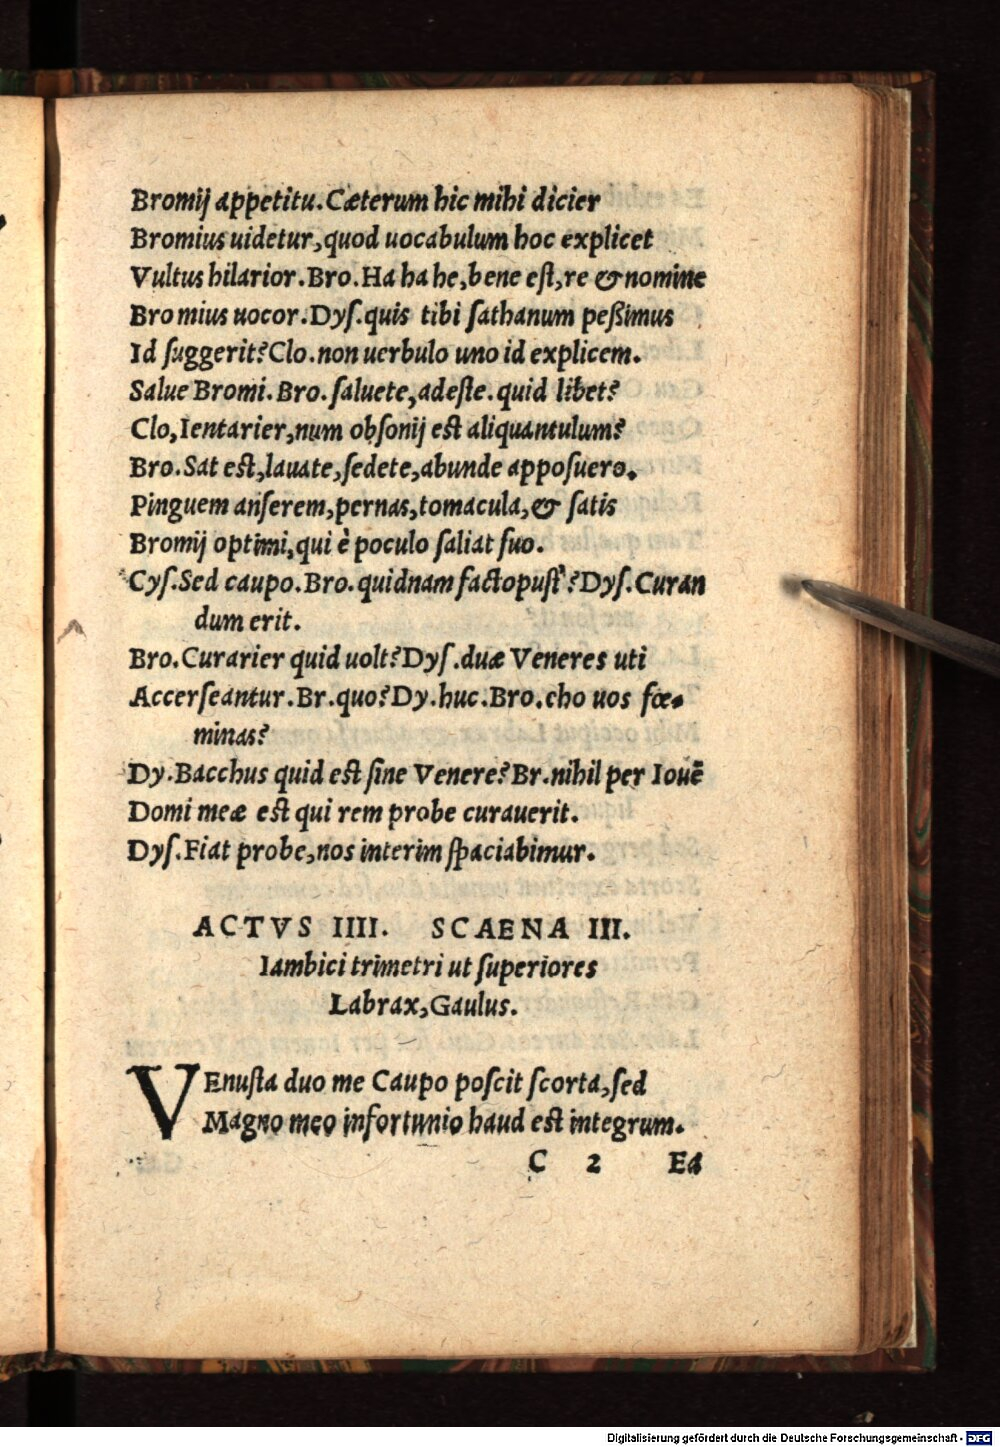 Bromij appetitu. Cæterum hic mihi dicier
Bromius uidetur, quod uocabulum hoc explicet
Vultus hilarior. Bro. Ha ha he, bene eſt, re & nomine
Bromius uocor. Dyſ. quis tibi ſathanum peßimus
Id ſuggerit? Clo. non uerbulo uno id explicem.
Salue Bromi. Bro. ſaluete, adeſte. quid libet?
Clo, Ientarier, num obſonij eſt aliquantulum?
Bro. Sat eſt, lauate, ſedete, abunde appoſuero.
Pinguem anſerem, pernas, tomacula, & ſatis
Bromij optimi, qui è poculo ſaliat ſuo.
Cyſ. Sed caupo. Bro. quidnam factopuſt'? Dyſ. Curan
dum erit.
Bro. Curarier quid uolt? Dyſ. duæ Veneres uti
Accerſeantur. Br. quo? Dy. huc. Bro. eho uos fœ-
minas?
Dy. Bacchus quid eſt ſine Venere? Br. nihil per Iouē
Domi meæ eſt qui rem probe curauerit.
Dyſ. Fiat probe, nos interim ſpaciabimur.
ACTVS IIII. SCAENA III.
Iambici trimetri ut ſuperiores
Labrax, Gaulus.
VEnuſta duo me Caupo poſcit ſcorta, ſed
Magno meo infortunio haud eſt integrum.
C 2 Ea
Digitalisierung gefördert durch die Deutsche Forschungsgemeinschaft - DFG